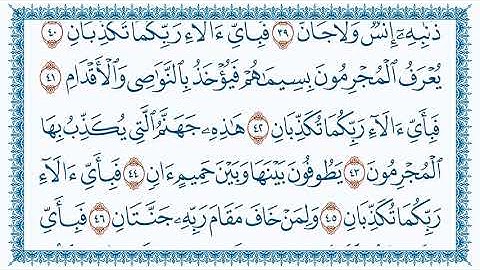 ذَنۢبِهِۦٓ إِنسٌ وَلَا جَآنٌّ ٣٩ فَبِأَىِّ ءَالَآءِ رَبِّكُمَا تُكَذِّبَانِ ٤٠
يُعْرَفُ ٱلْمُجْرِمُونَ بِسِيمَٰهُمْ فَيُؤْخَذُ بِٱلنَّوَٰصِى وَٱلْأَقْدَامِ ٤١
فَبِأَىِّ ءَالَآءِ رَبِّكُمَا تُكَذِّبَانِ ٤٢ هَٰذِهِۦ جَهَنَّمُ ٱلَّتِى يُكَذِّبُ بِهَا
ٱلْمُجْرِمُونَ ٤٣ يَطُوفُونَ بَيْنَهَا وَبَيْنَ حَمِيمٍ ءَانٍ ٤٤ فَبِأَىِّ ءَالَآءِ
رَبِّكُمَا تُكَذِّبَانِ ٤٥ وَلِمَنْ خَافَ مَقَامَ رَبِّهِۦ جَنَّتَانِ ٤٦ فَبِأَىِّ